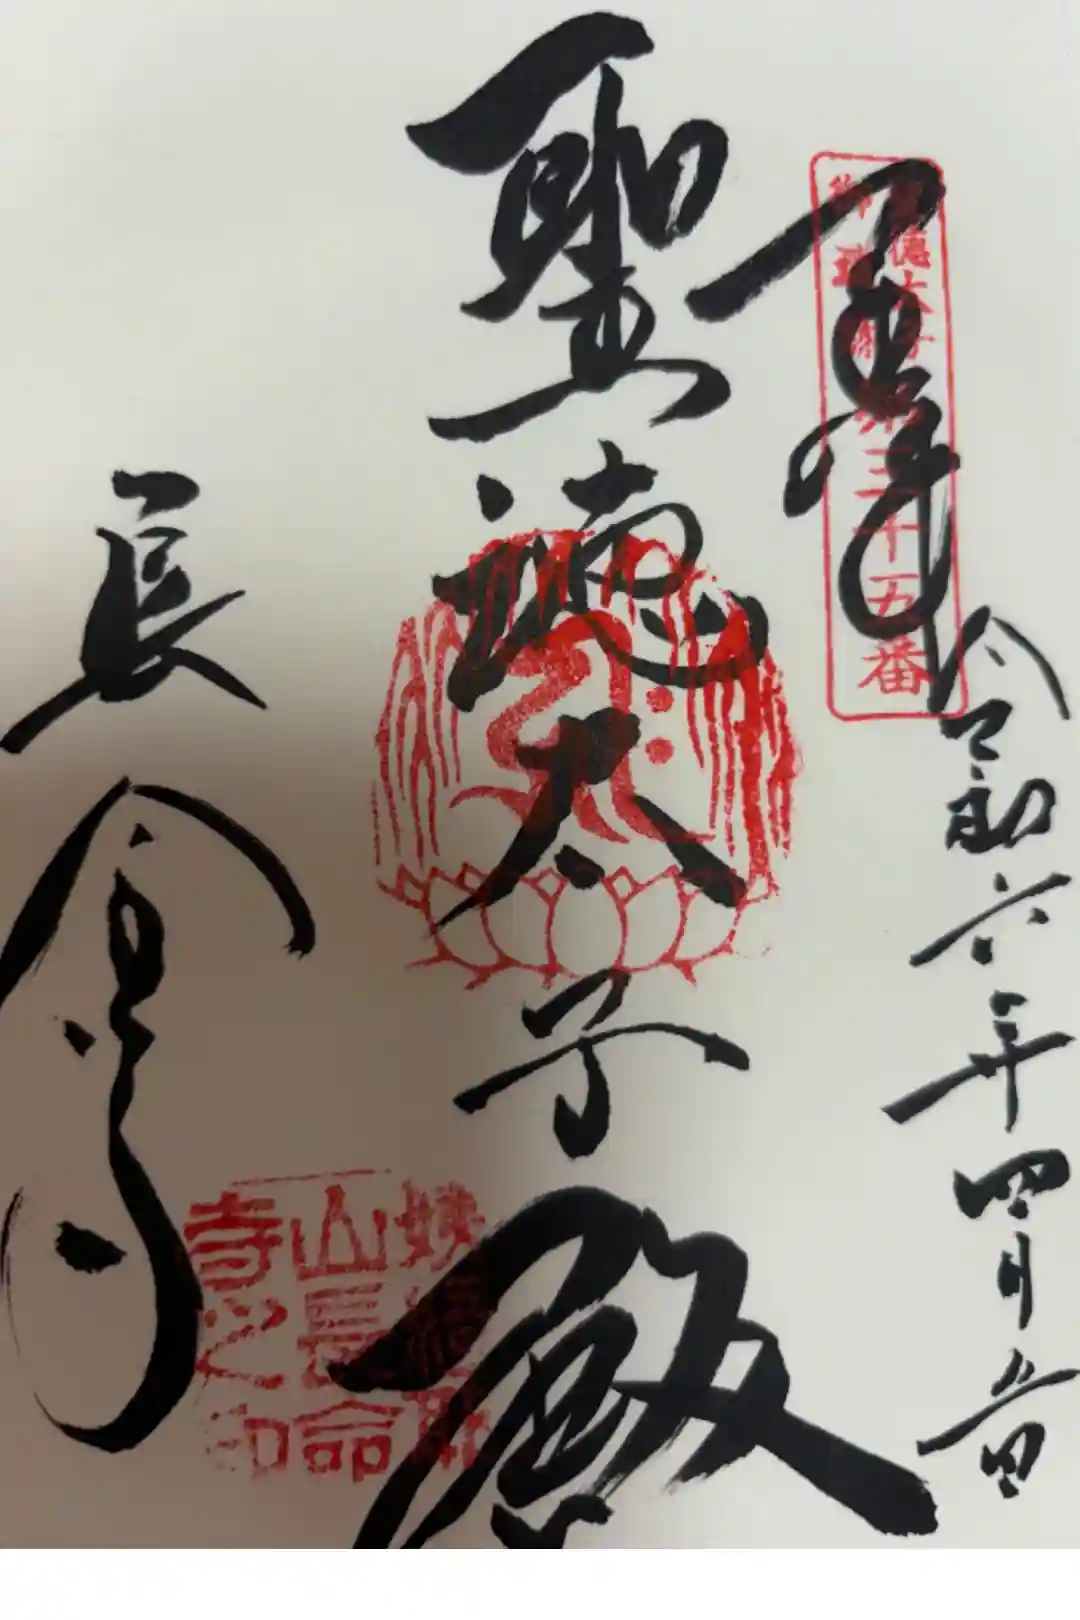 奉拝
聖徳太子
御遺跡
第三十五番
令和六年四月六日
聖徳太子殿
長命寺
姨綺耶
山長命
寺之印